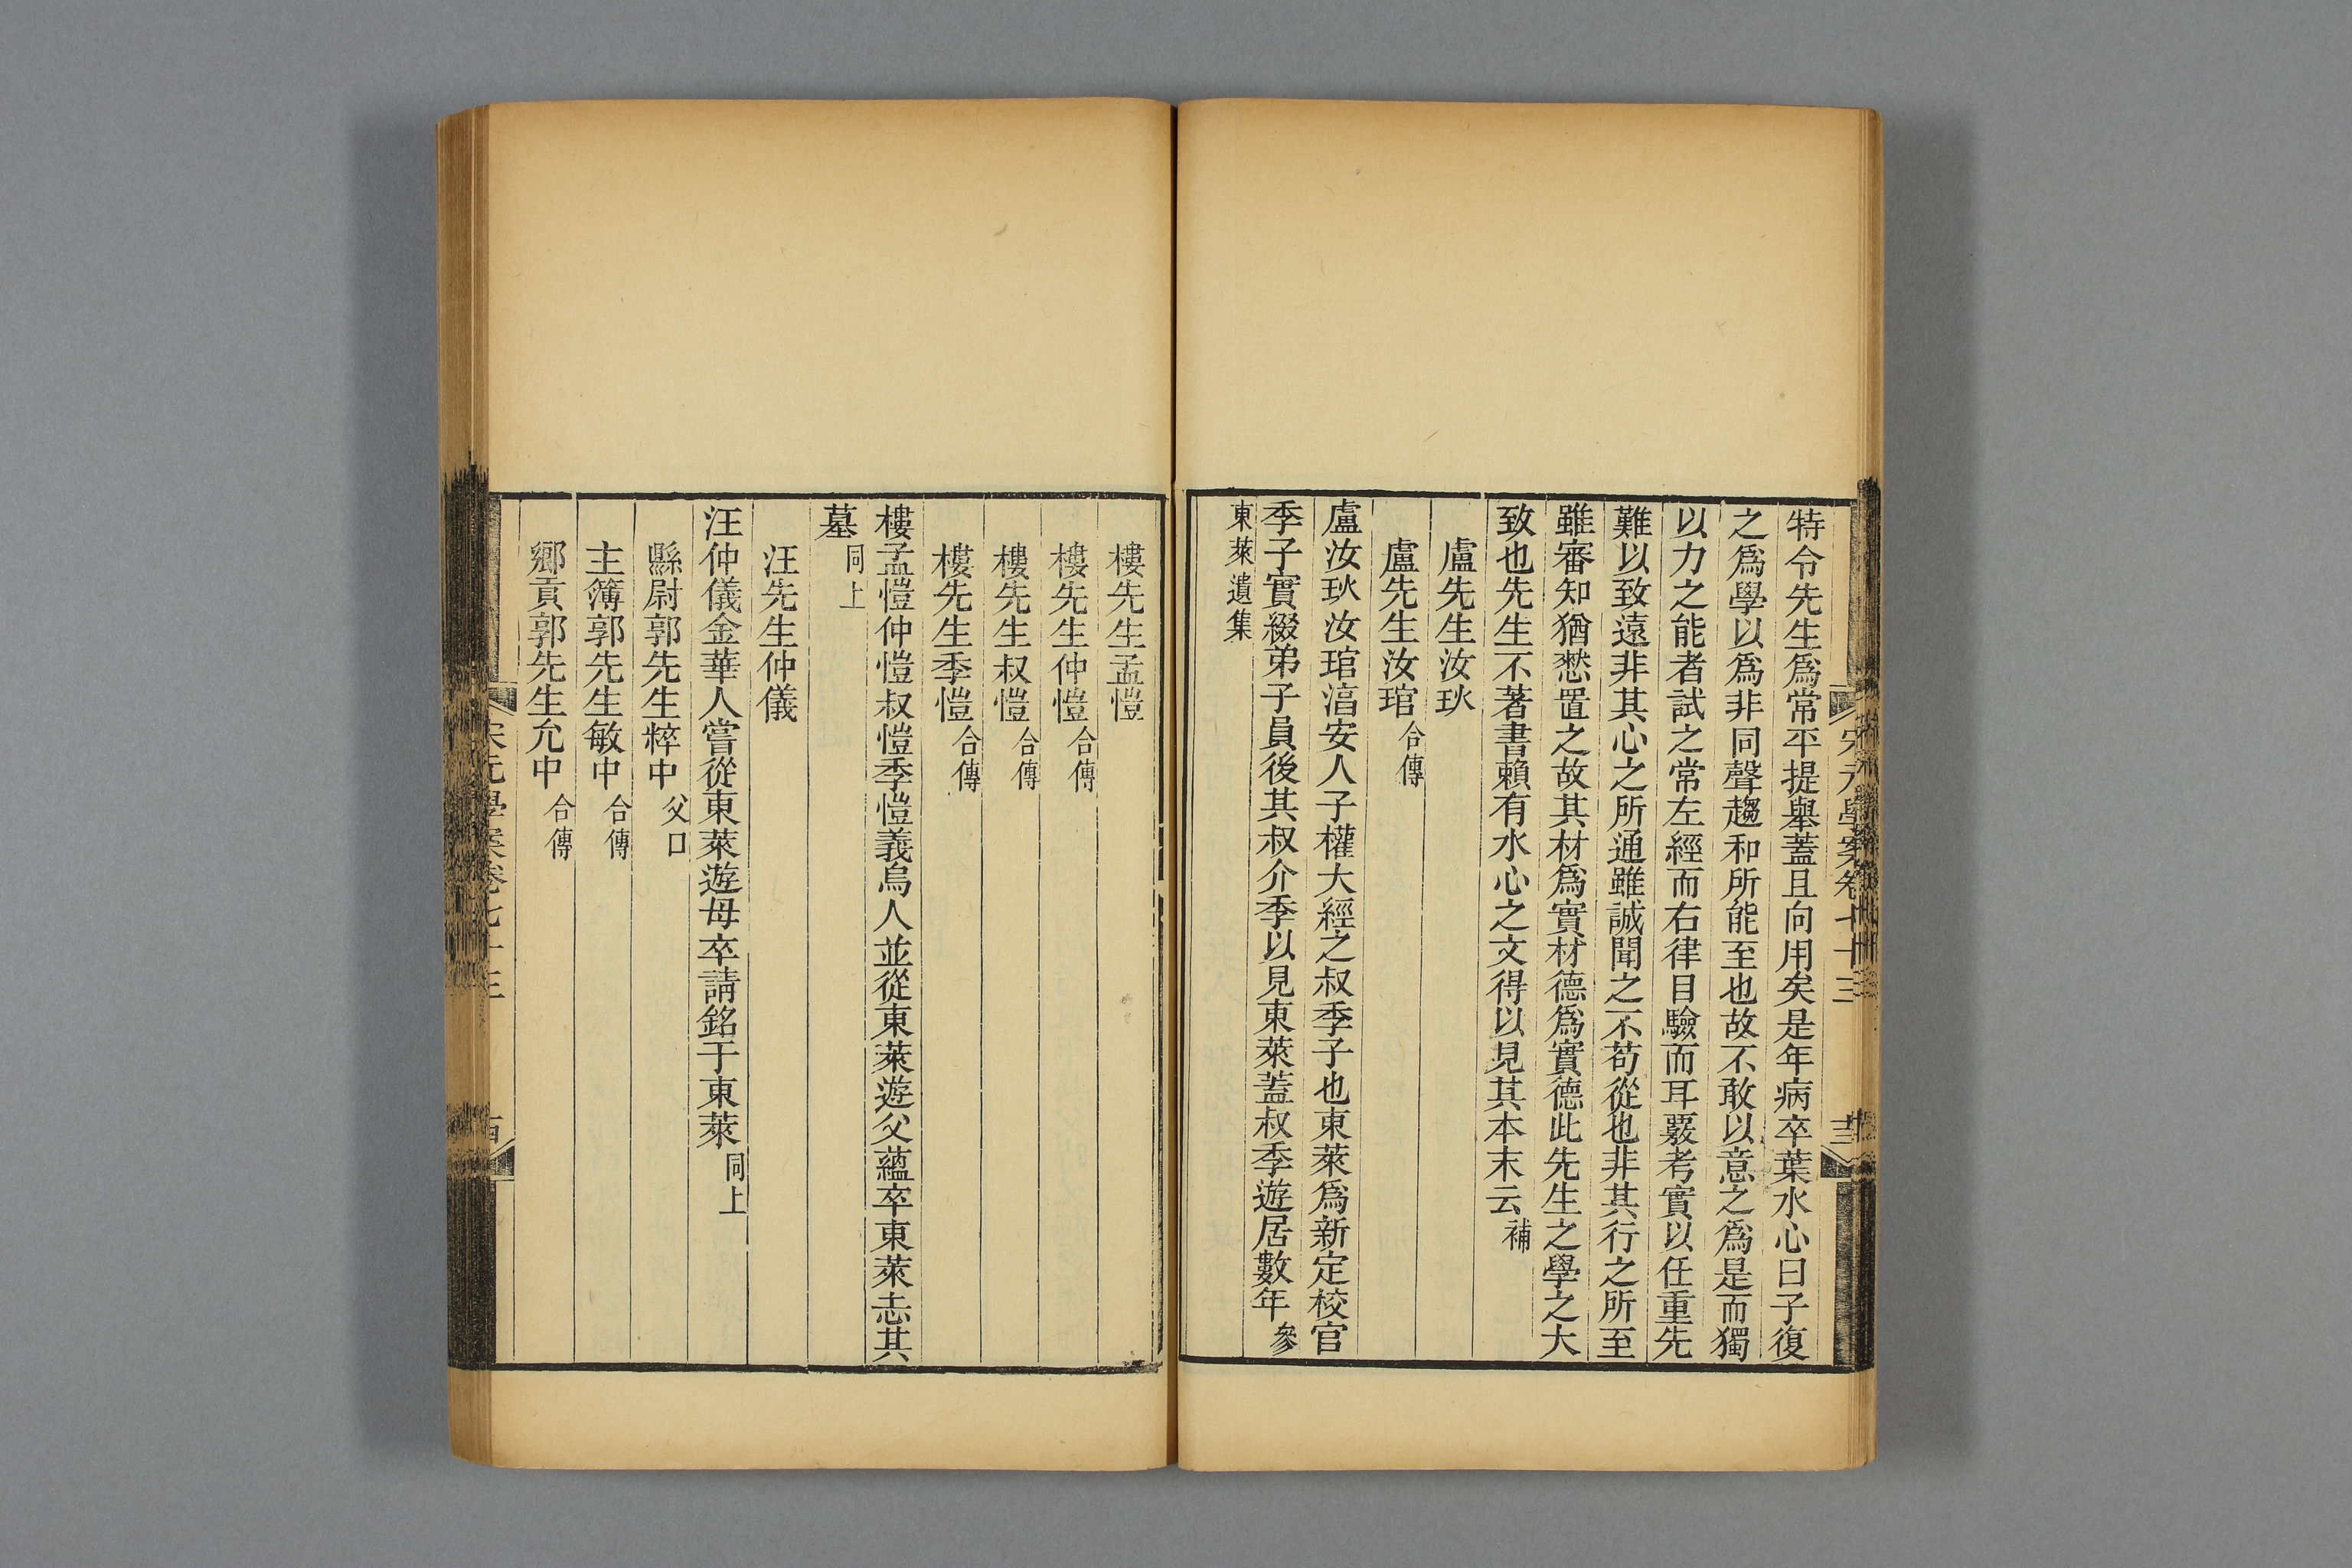 宋元學案卷七十三
特令先生爲常平提舉蓋且向用矣是年病卒葉水心曰子復
之爲學以爲非同聲趨和所能至也故不敢以意之爲是而獨
以力之能者試之常左經而右律目驗而耳覈考實以任重先
難以致遠非其心之所通雖誠聞之不苟從也非其行之所至
雖審知猶愸置之故其材爲實材德爲實德此先生之學之大
致也先生不著書賴有水心之文得以見其本末云補
盧先生汝㺵
盧先生汝琯合傳
盧汝㺵汝琯湻安人子權大經之叔季子也東萊爲新定校官
季子實綴弟子員後其叔介季以見東萊蓋叔季遊居數年參
東萊遺集
樓先生孟愷
樓先生仲愷合傳
樓先生叔愷合傳
樓先生季愷合傳
樓孟愷仲愷叔愷季愷義烏人並從東萊遊父蘊卒東萊志其
墓同上
汪先生仲儀
汪仲儀金華人嘗從東萊遊母卒請銘于東萊同上
縣尉郭先生粹中父口
主簿郭先生敏中合傳
鄉貢郭先生允中合傳
宋元學案卷七十三